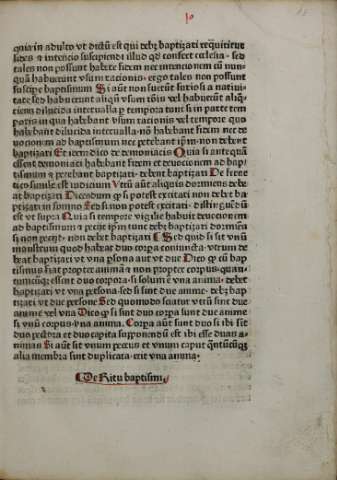 quia in adulto vt dictũ est qui debz baptizari requiritur
fides ⁊ intencio suscipiendi illud qd consert ecclesia. sed
tales non possunt habere fidem nec intencionem cũ nun-
quã habuerunt vsum racionis. ergo tales non possunt
suscipe baptismum Si aũt non fuerũt furiosi a natiui-
tate sed habuerunt aliqñ vsum rõis vel habuerũt aliq̃
tiens dilucida interualla. si pro tempore
poris in qua habebant vsum racionis vel tempore quo
habebãt dilucida interualla. nõ habebant fidem nec de
uocionem ad baptismum nec petebant ipm. non debent
baptizari Et idem dico de demoniacis Quia si antequã
essent demoniaci habebant fidem et deuocionem ad bap-
tismum ⁊ petebant baptizari. debent baptizari De frene
tico simile est iudicium Vtrũ aũt aliquis dormiens debe-
at baptizari Dicendum ꝙ si potest excitari non debet ba
ptizari in somno Sed si non potest excitari. distinguẽdũ
est vt supra Quia si tempore vigilie habuit deuocionem
ad baptismum ⁊ petijt ipm tunc debet baptizari dormiẽs
si non petijt. non debet baptizari Sed quid si sit vnũ
monstrum quod habeat duo corpa coniuncta. vtrum de
beat baptizari vt vna psona aut vt due Dico ꝙ cũ bap
tismus fiat propter animã ⁊ non propter corpus. quan-
tumcũqz essent duo corpora. si solum ẽ vna anima. debet
baptizari vt vna persona sed si sint due anime. debz bap
tizari vt due persone Sed quomodo sciatur vtrũ sint due
anime vel vna Dico ꝙ si sint duo corpa sunt due anime
si vnũ corpus. vna anima. Corpa aũt sunt duo si ibi sit
duo pectora et duo capita supponendũ est ibi esse duas a-
nimas Si aũt sit vnum pectus et vnum caput quãtũcũqz
alia membra sint duplicata. erit vna anima.
De Ritu baptismi